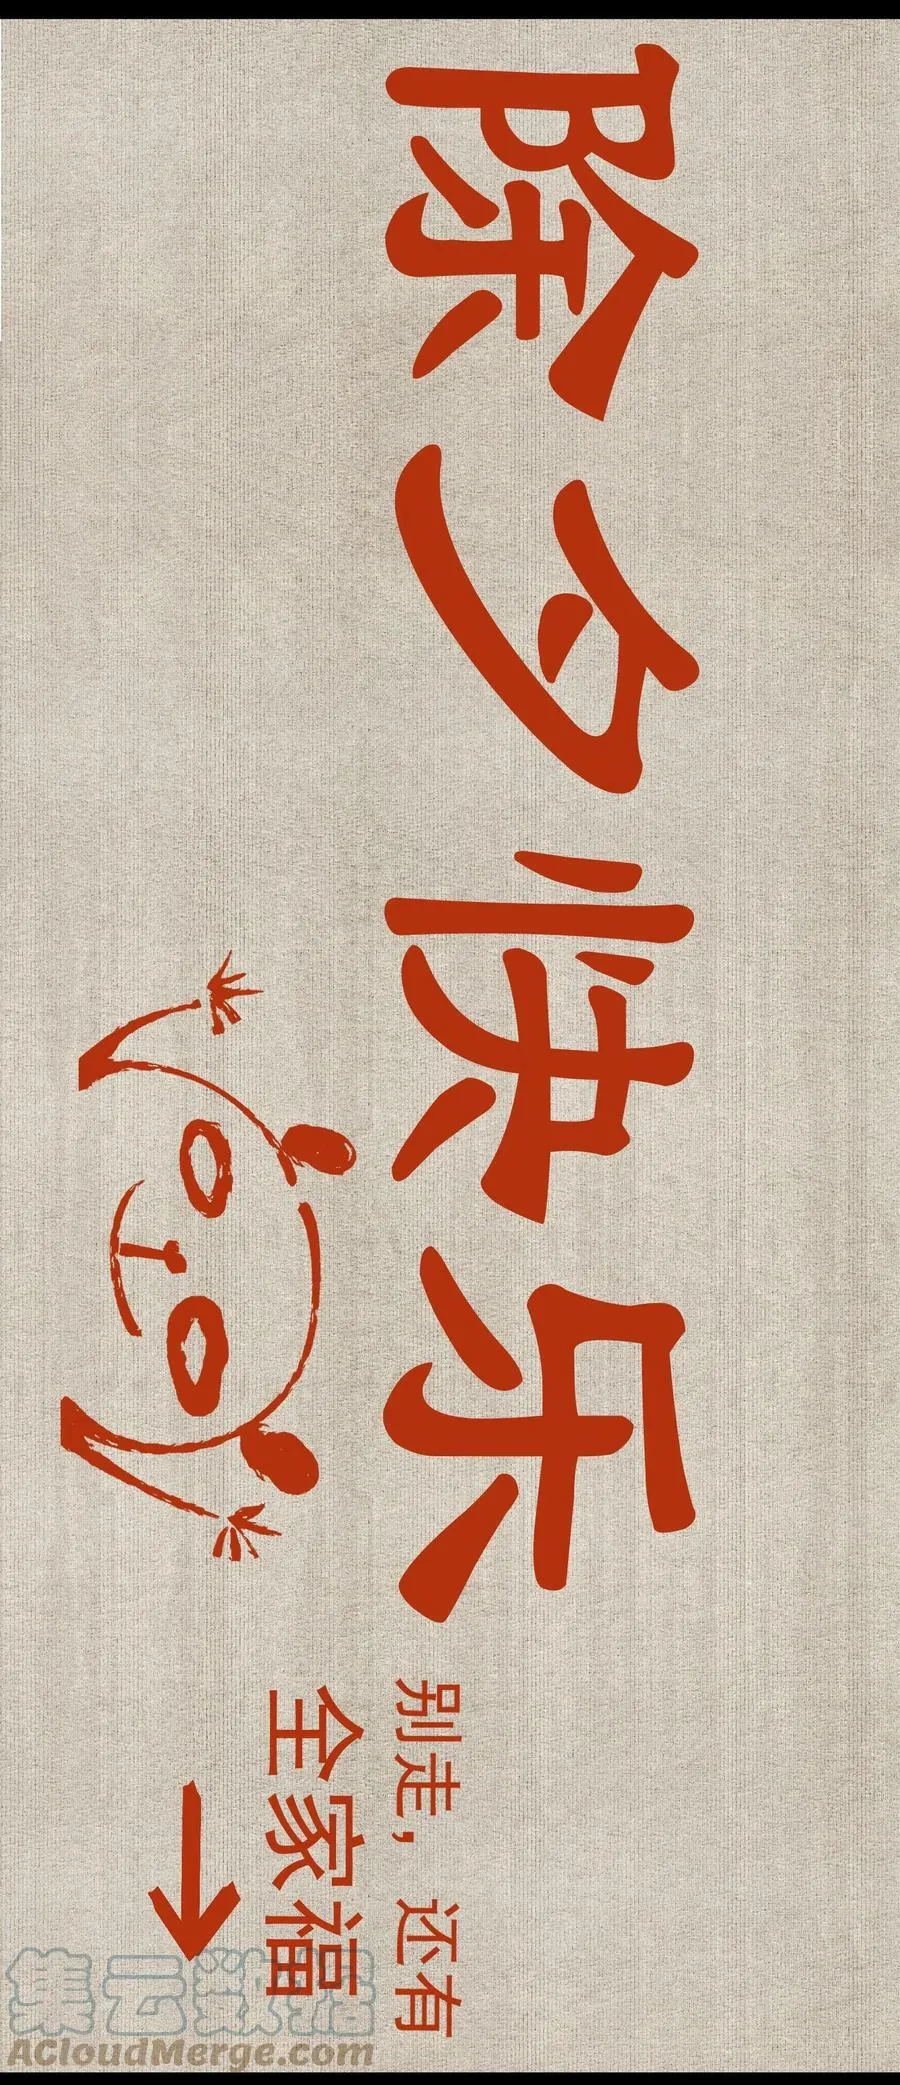 除夕快乐
别走，还有
全家福
集云数据
ACloudMerge.com